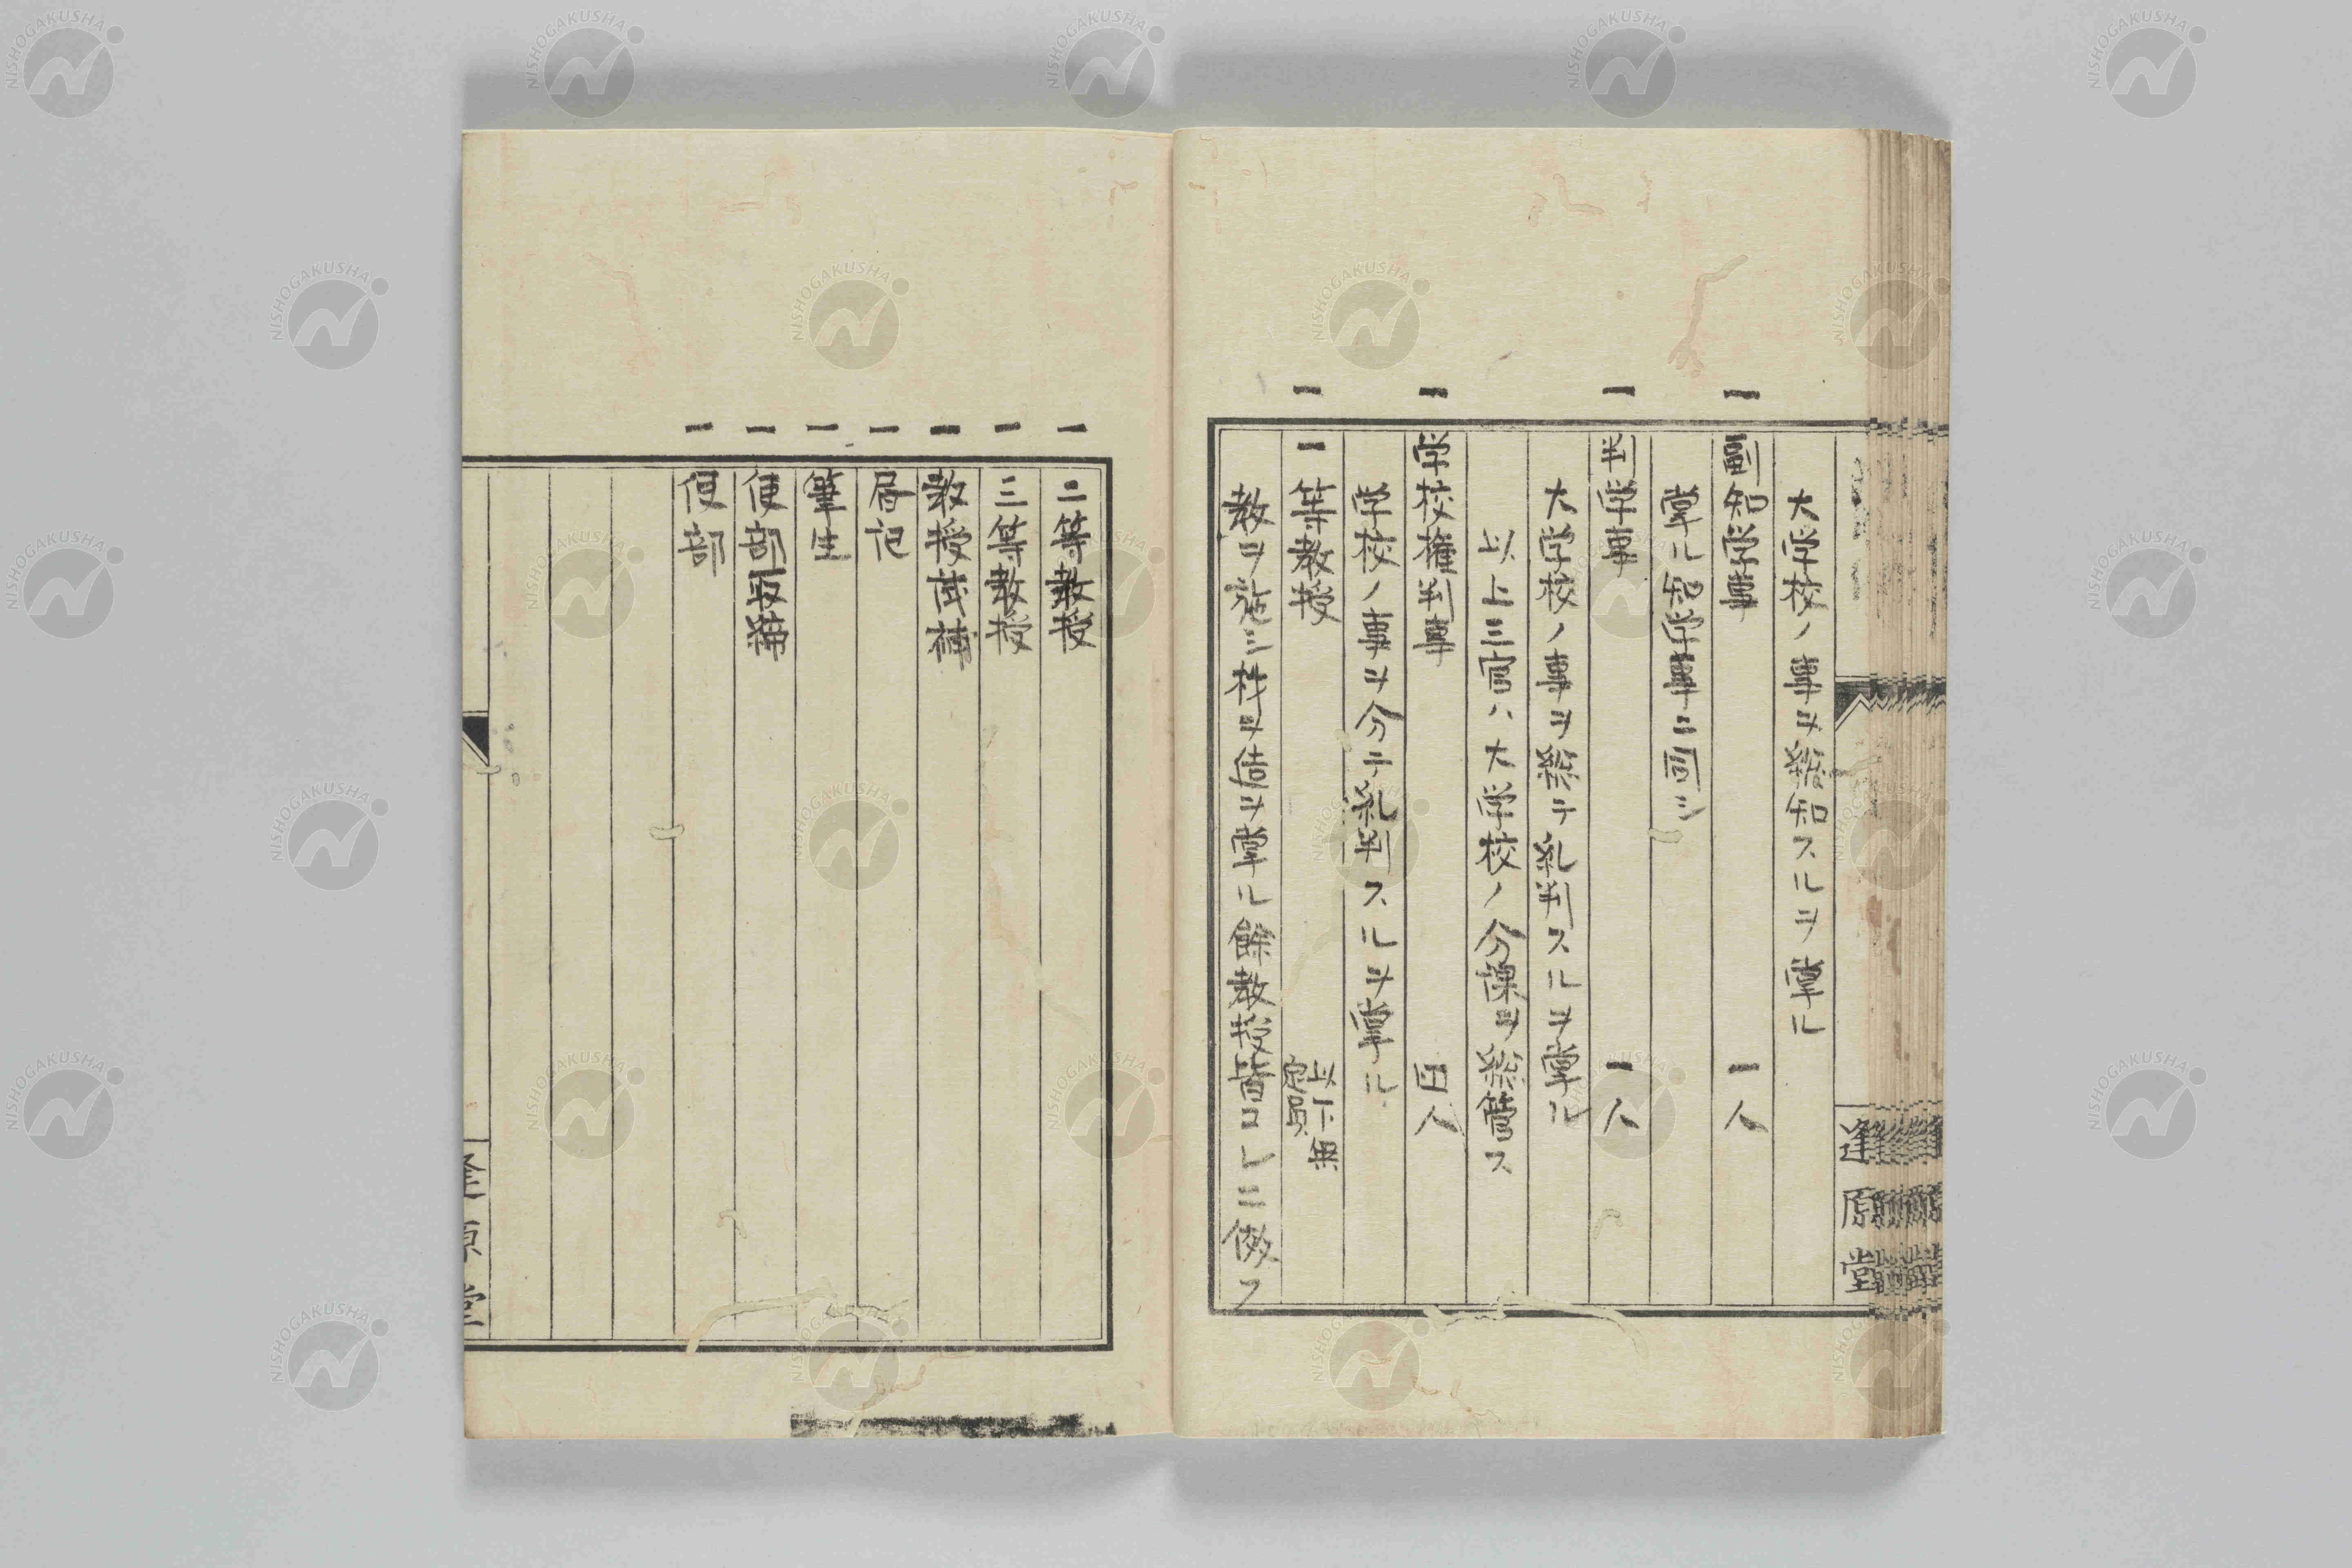 大学校ノ事ヲ総知スルヲ掌ル
一 副知学事 一人
掌ル知学事ニ同シ
一 判学事 一人
大学校ノ事ヲ総テ糺判スルヲ掌ル
以上三官ハ大学校ノ分課ヲ総管ス
一 学校権判事 四人
学校ノ事ヲ分テ糺判スルヲ掌ル
一 一等教授 以下無定員
教ヲ施シ材ヲ造ヲ掌ル餘教授皆コレニ倣フ
逢原堂
一 二等教授
一 三等教授
一 教授試補
一 局記
一 筆生
一 使部取締
一 使部
逢原堂
NISHOGAKUSHA